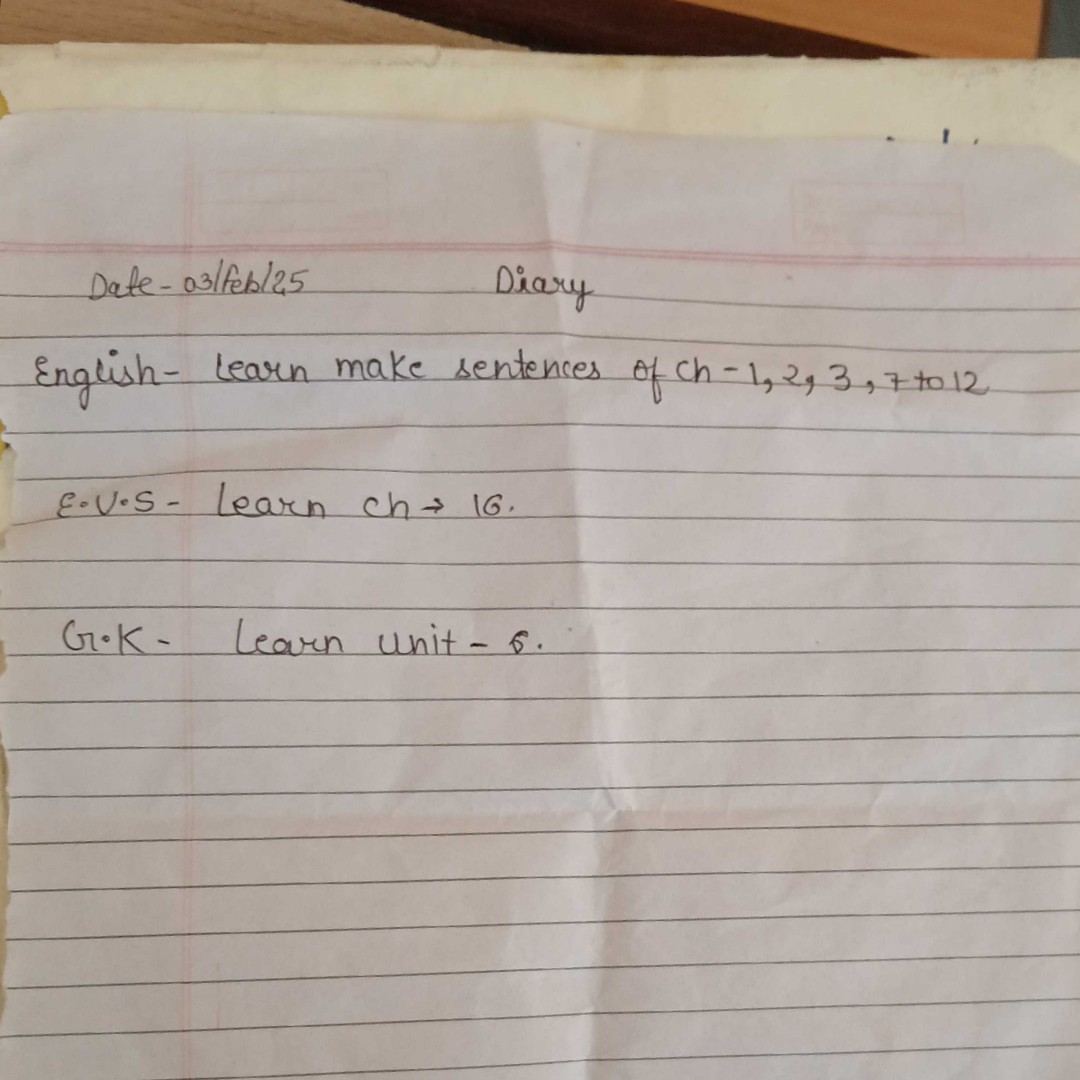 Date - 03/Feb/25 Diary
English - Learn make sentences of ch - 1, 2, 3, 7 to 12
E.V.S - Learn ch → 16.
G.K - Learn unit - 6.